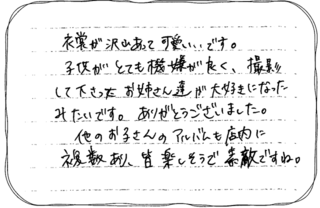 衣裳が沢山あって可愛いいです。
子供がとても機嫌が良く、撮影
して下さったお姉さん達が大好きになった
みたいです。ありがとうございました。
他のお子さんのアルバムも店内に
複数あり、皆楽しそうで素敵ですね。